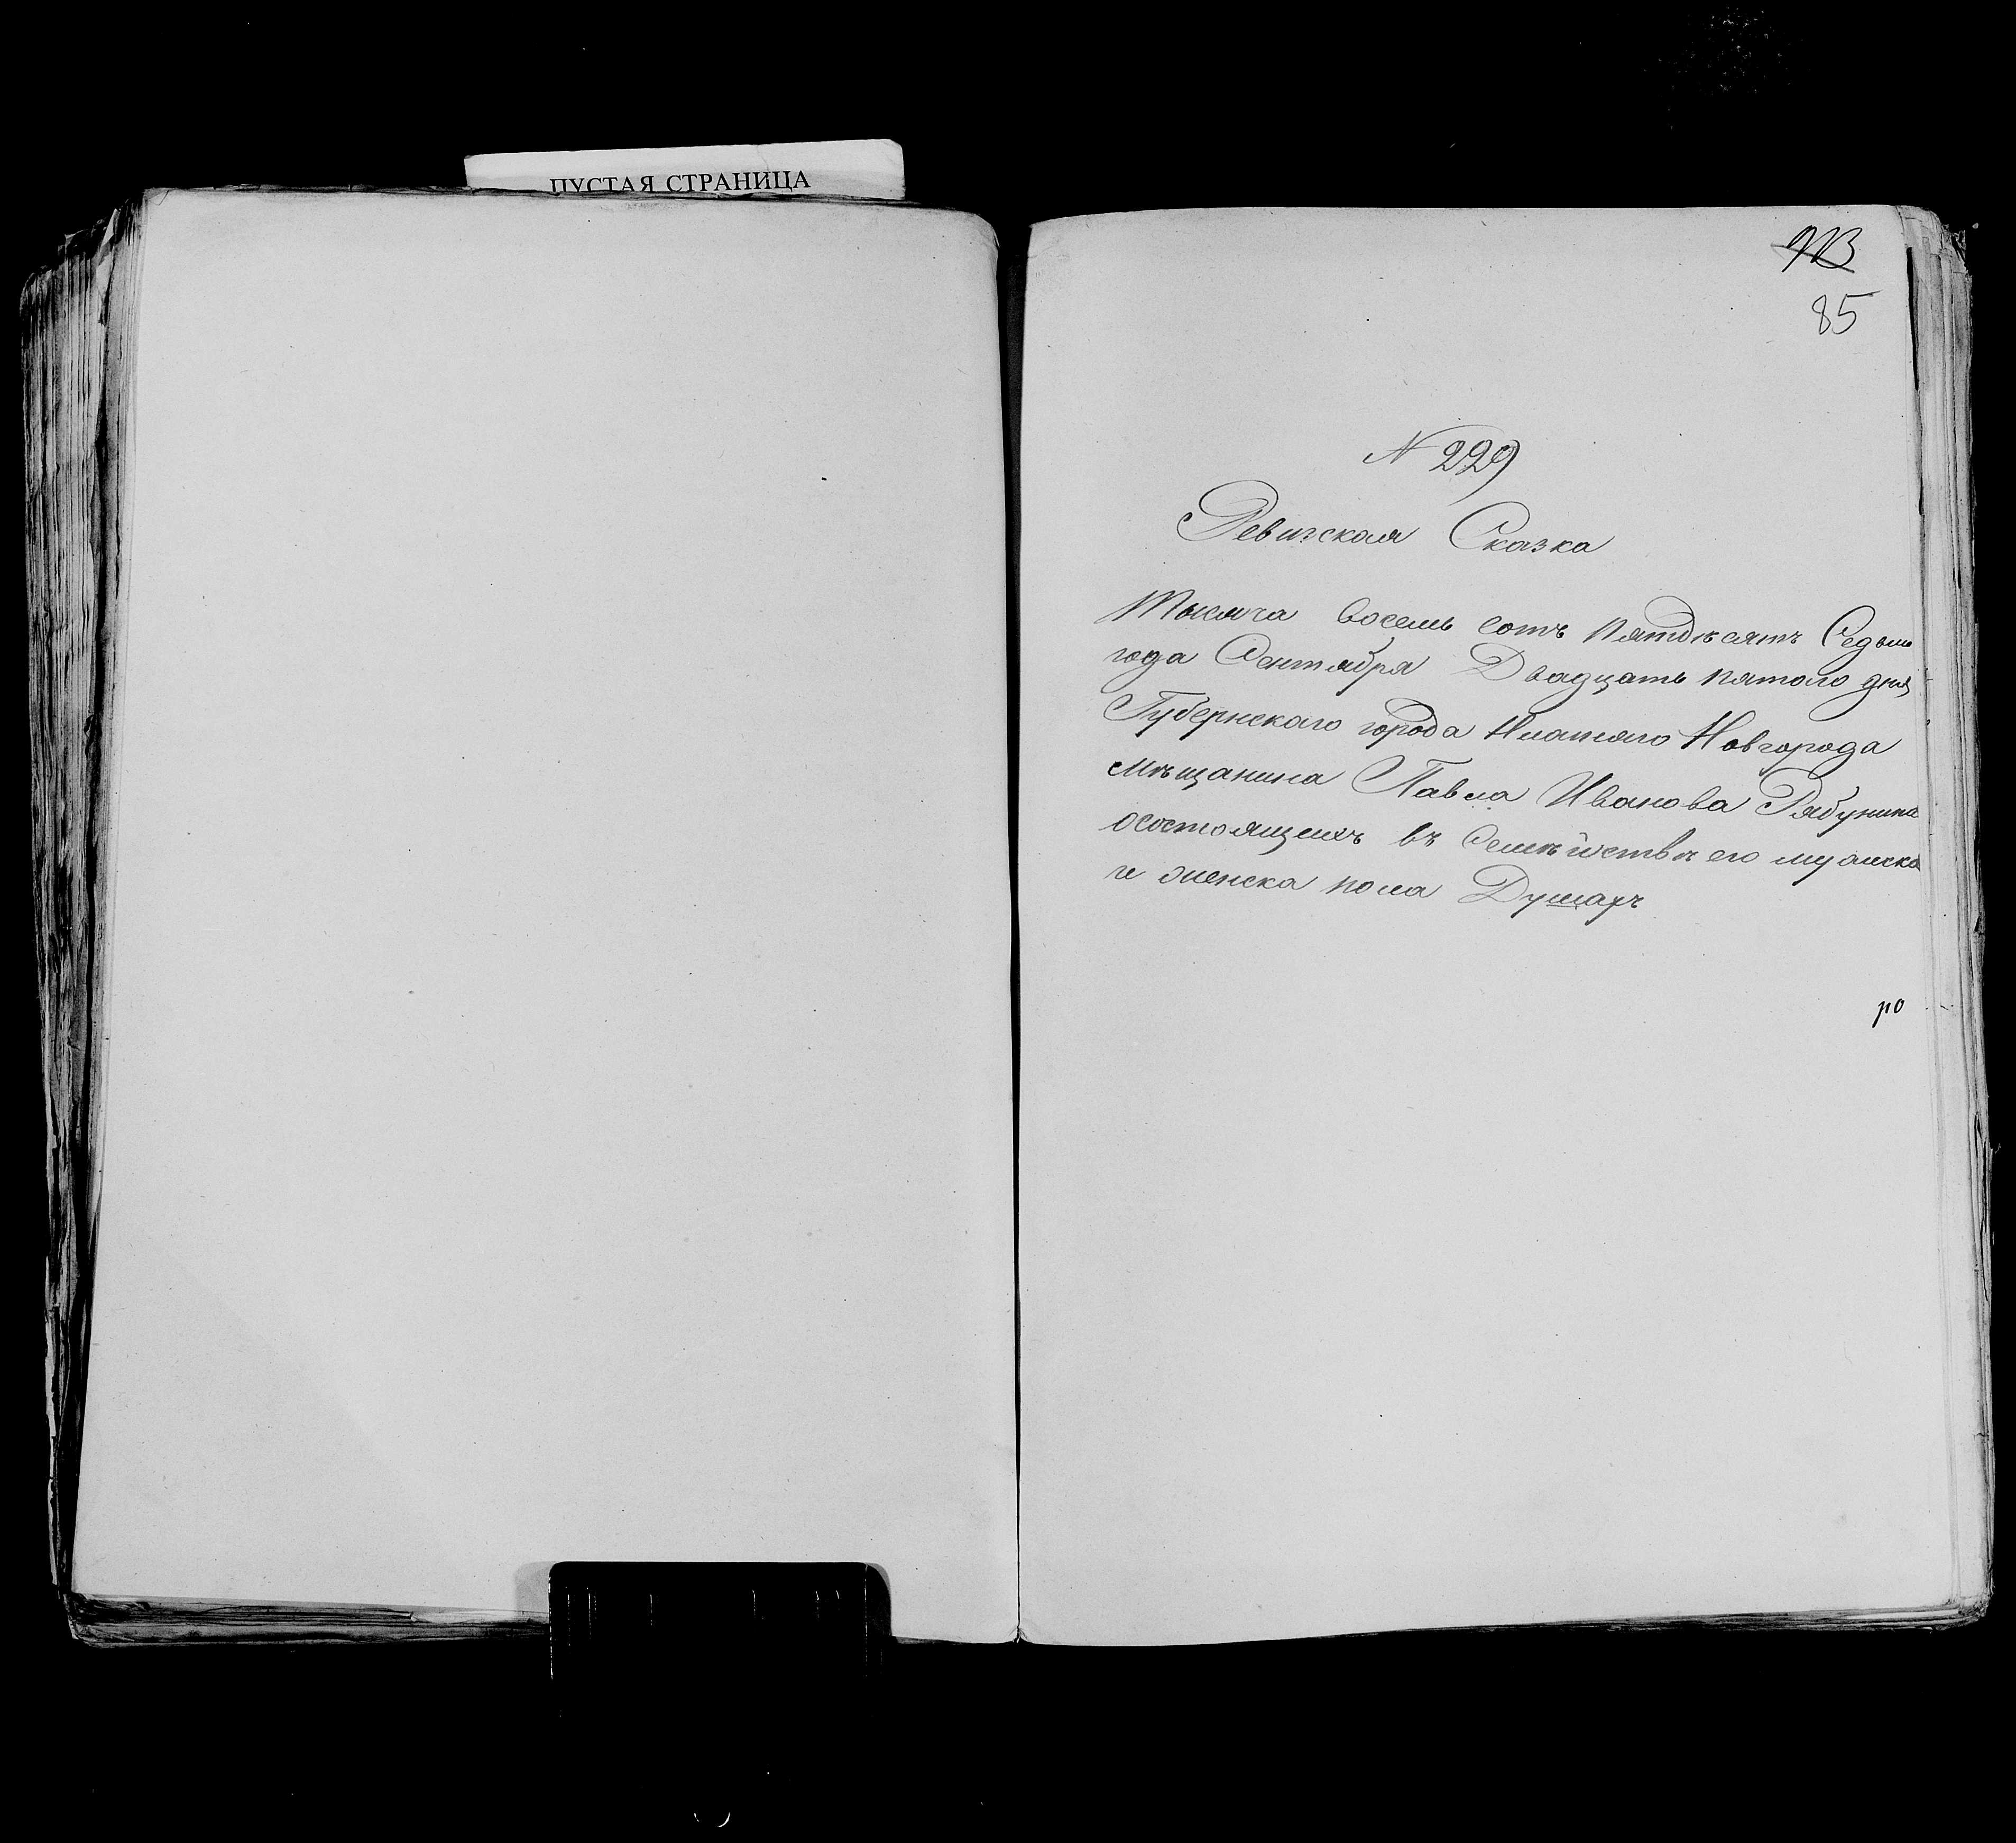 ПУСТАЯ СТРАНИЦА
85
N 229
Ревизская Сказка
Тысяча восемь сотъ пятдѣсятъ Седьмо
года Сентября Двадцать пятого дня
Губернскаго города Нижняго Новгорода
мѣщанина Павла Иванова Рябинина
осостоящихъ въ Семѣйствѣ его мужска
и женска пола Душахъ
ро